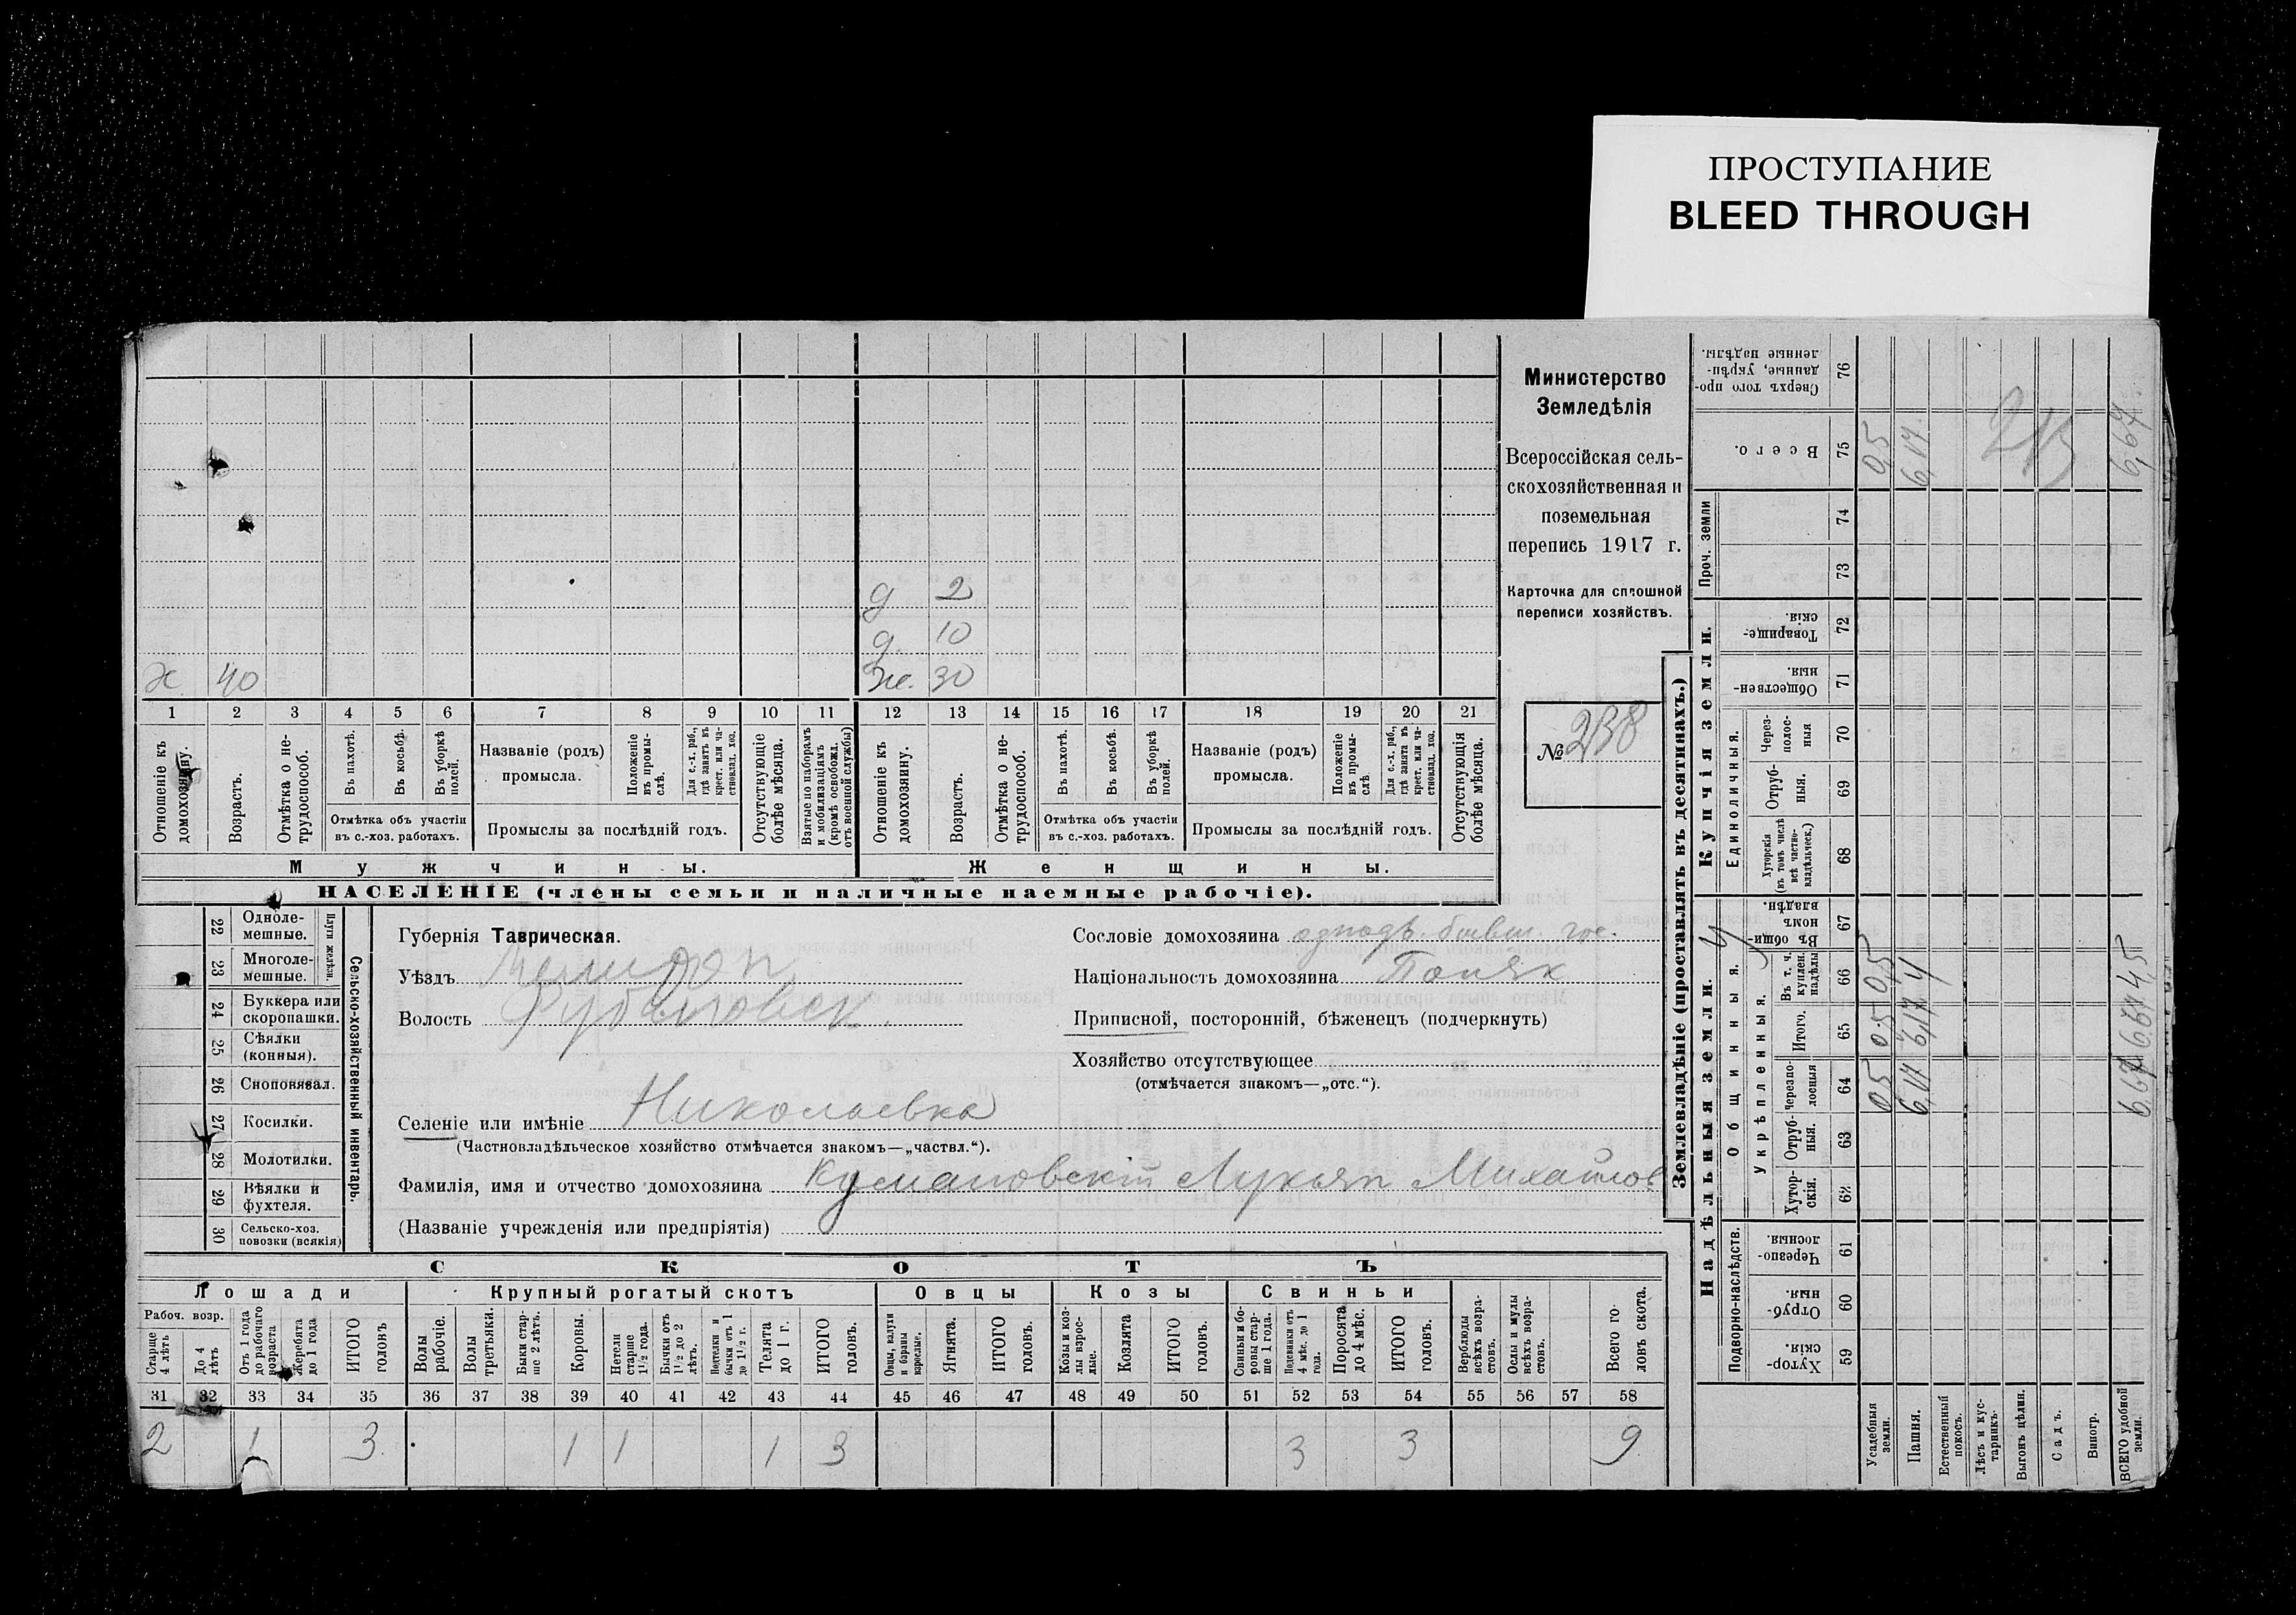 ПРОСТУПАНИЕ
BLEED THROUGH
Министерство
Земледѣлія
Всероссійская сель-
скохозяйственная и
поземельная
перепись 1917 г.
Карточка для сплошной
переписи хозяйствъ.
№ 238
д 2
д. 10
х 40 же. 30
1 2 3 4 5 6 7 8 9 10 11 12 13 14 15 16 17 18 19 20 21
Отношеніе къ домохозяину.
Возрастъ.
Отмѣтка о не-трудоспособ.
Въ пахотѣ.
Въ косьбѣ.
Въ уборкѣ полей.
Отмѣтка объ участіи
въ с.-хоз. работахъ.
Названіе (родъ)
промысла.
Положеніе въ промы-слѣ.
Для с.-х. раб., гдѣ занятъ въ крест. или ча-стновлад. хоз.
Промыслы за послѣдній годъ.
Отсутствующіе болѣе мѣсяца.
Взятые по наборамъ и мобилизаціямъ (кромѣ освобожл. отъ военной службы)
Отношеніе къ домохозяину.
Возрастъ.
Отмѣтка о не-трудоспособ.
Въ пахотѣ.
Въ косьбѣ.
Въ уборкѣ полей.
Отмѣтка объ участіи
въ с.-хоз. работахъ.
Названіе (родъ)
промысла.
Положеніе въ промы-слѣ.
Для с.-х. раб., гдѣ занята въ крест. или ча-стновлад. хоз.
Промыслы за послѣдній годъ.
Отсутствующія болѣе мѣсяца.
Мужчины.
Женщины.
НАСЕЛЕНІЕ (члены семьи и наличные наемные рабочіе).
22 Одноле-мешные.
23 Многоле-мешные.
Плуги желѣзн.
24 Буккера или скоропашки.
25 Сѣялки (конныя).
26 Сноповязал.
27 Косилки.
28 Молотилки.
29 Вѣялки и фухтеля.
30 Сельско-хоз. повозки (всякія)
Сельско-хозяйственный инвентарь.
Губернія Таврическая.
Уѣздъ Мелитоп
Волость Рубановск.
Селеніе или имѣніе Николаевка
(Частновладѣльческое хозяйство отмѣчается знакомъ—„частвл.“).
Фамилія, имя и отчество домохозяина Кумановскій Лукьян Михайлов
(Названіе учрежденія или предпріятія)
Сословіе домохозяина бывш. гос.
Національность домохозяина Поляк
Приписной, посторонній, бѣженецъ (подчеркнуть)
Хозяйство отсутствующее
(отмѣчается знакомъ—„отс.“).
СКОТЪ
Лошади
Крупный рогатый скотъ
Овцы
Козы
Свиньи
Рабоч. возр.
Старше 4 лѣтъ
До 4 лѣтъ
Отъ 1 года до рабочаго возраста
Жеребята до 1 года
ИТОГО головъ
Волы рабочіе.
Волы третьяки.
Быки стар-ше 2 лѣтъ.
Коровы.
Нетели старше 1½ года.
Бычки отъ 1½ до 2 лѣтъ.
Подтелки и бычки отъ 1 до 1½ г.
Телята до 1 г.
ИТОГО головъ.
Овцы, валухи и бараны взрослые.
Ягнята.
ИТОГО головъ.
Козы и коз-лы взрос-лые.
Козлята
ИТОГО головъ.
Свиньи и бо-ровы стар-ше 1 года.
Подсвинки отъ 4 мѣс. до 1 года.
Поросята до 4 мѣс.
ИТОГО головъ.
Верблюды всѣхъ возра-стовъ.
Ослы и мулы всѣхъ возра-стовъ.
Всего го-ловъ скота.
31 32 33 34 35 36 37 38 39 40 41 42 43 44 45 46 47 48 49 50 51 52 53 54 55 56 57 58
2 1 3 1 1 1 3 3 3 9
Землевладѣніе (проставлять въ десятинахъ.)
Надѣльныя земли.
Купчія земли.
Проч. земли
Подворно-наслѣдств.
Общинныя.
Укрѣпленныя.
Единоличныя.
Хутор-скія. 59
Отруб-ныя. 60
Черезпо-лосныя. 61
Хутор-скія. 62
Отруб-ныя. 63
Черезпо-лосныя 64
Итого. 65
Въ т. ч. куплен. надѣлы 66
Въ общи-номъ владѣн. 67
Хуторскія (въ томъ числѣ всѣ частно-владѣльческ.) 68
Отруб-ныя. 69
Через-полос-ныя 70
Обществен-ныя. 71
Товарище-скія. 72
73
74
Всего. 75
Сверхъ того про-данные, укрѣп-ленные надѣлы. 76
Усадебныя земли. 0,5 0,5 0,5 0,5
Пашня. 6,17 6,17 4 6,17
Естественный покосъ.
Лѣсъ и кус-тарникъ.
Выгонъ цѣлин.
Садъ.
Виногр.
ВСЕГО удобной земли. 6,67 6,67 4,5 6,67